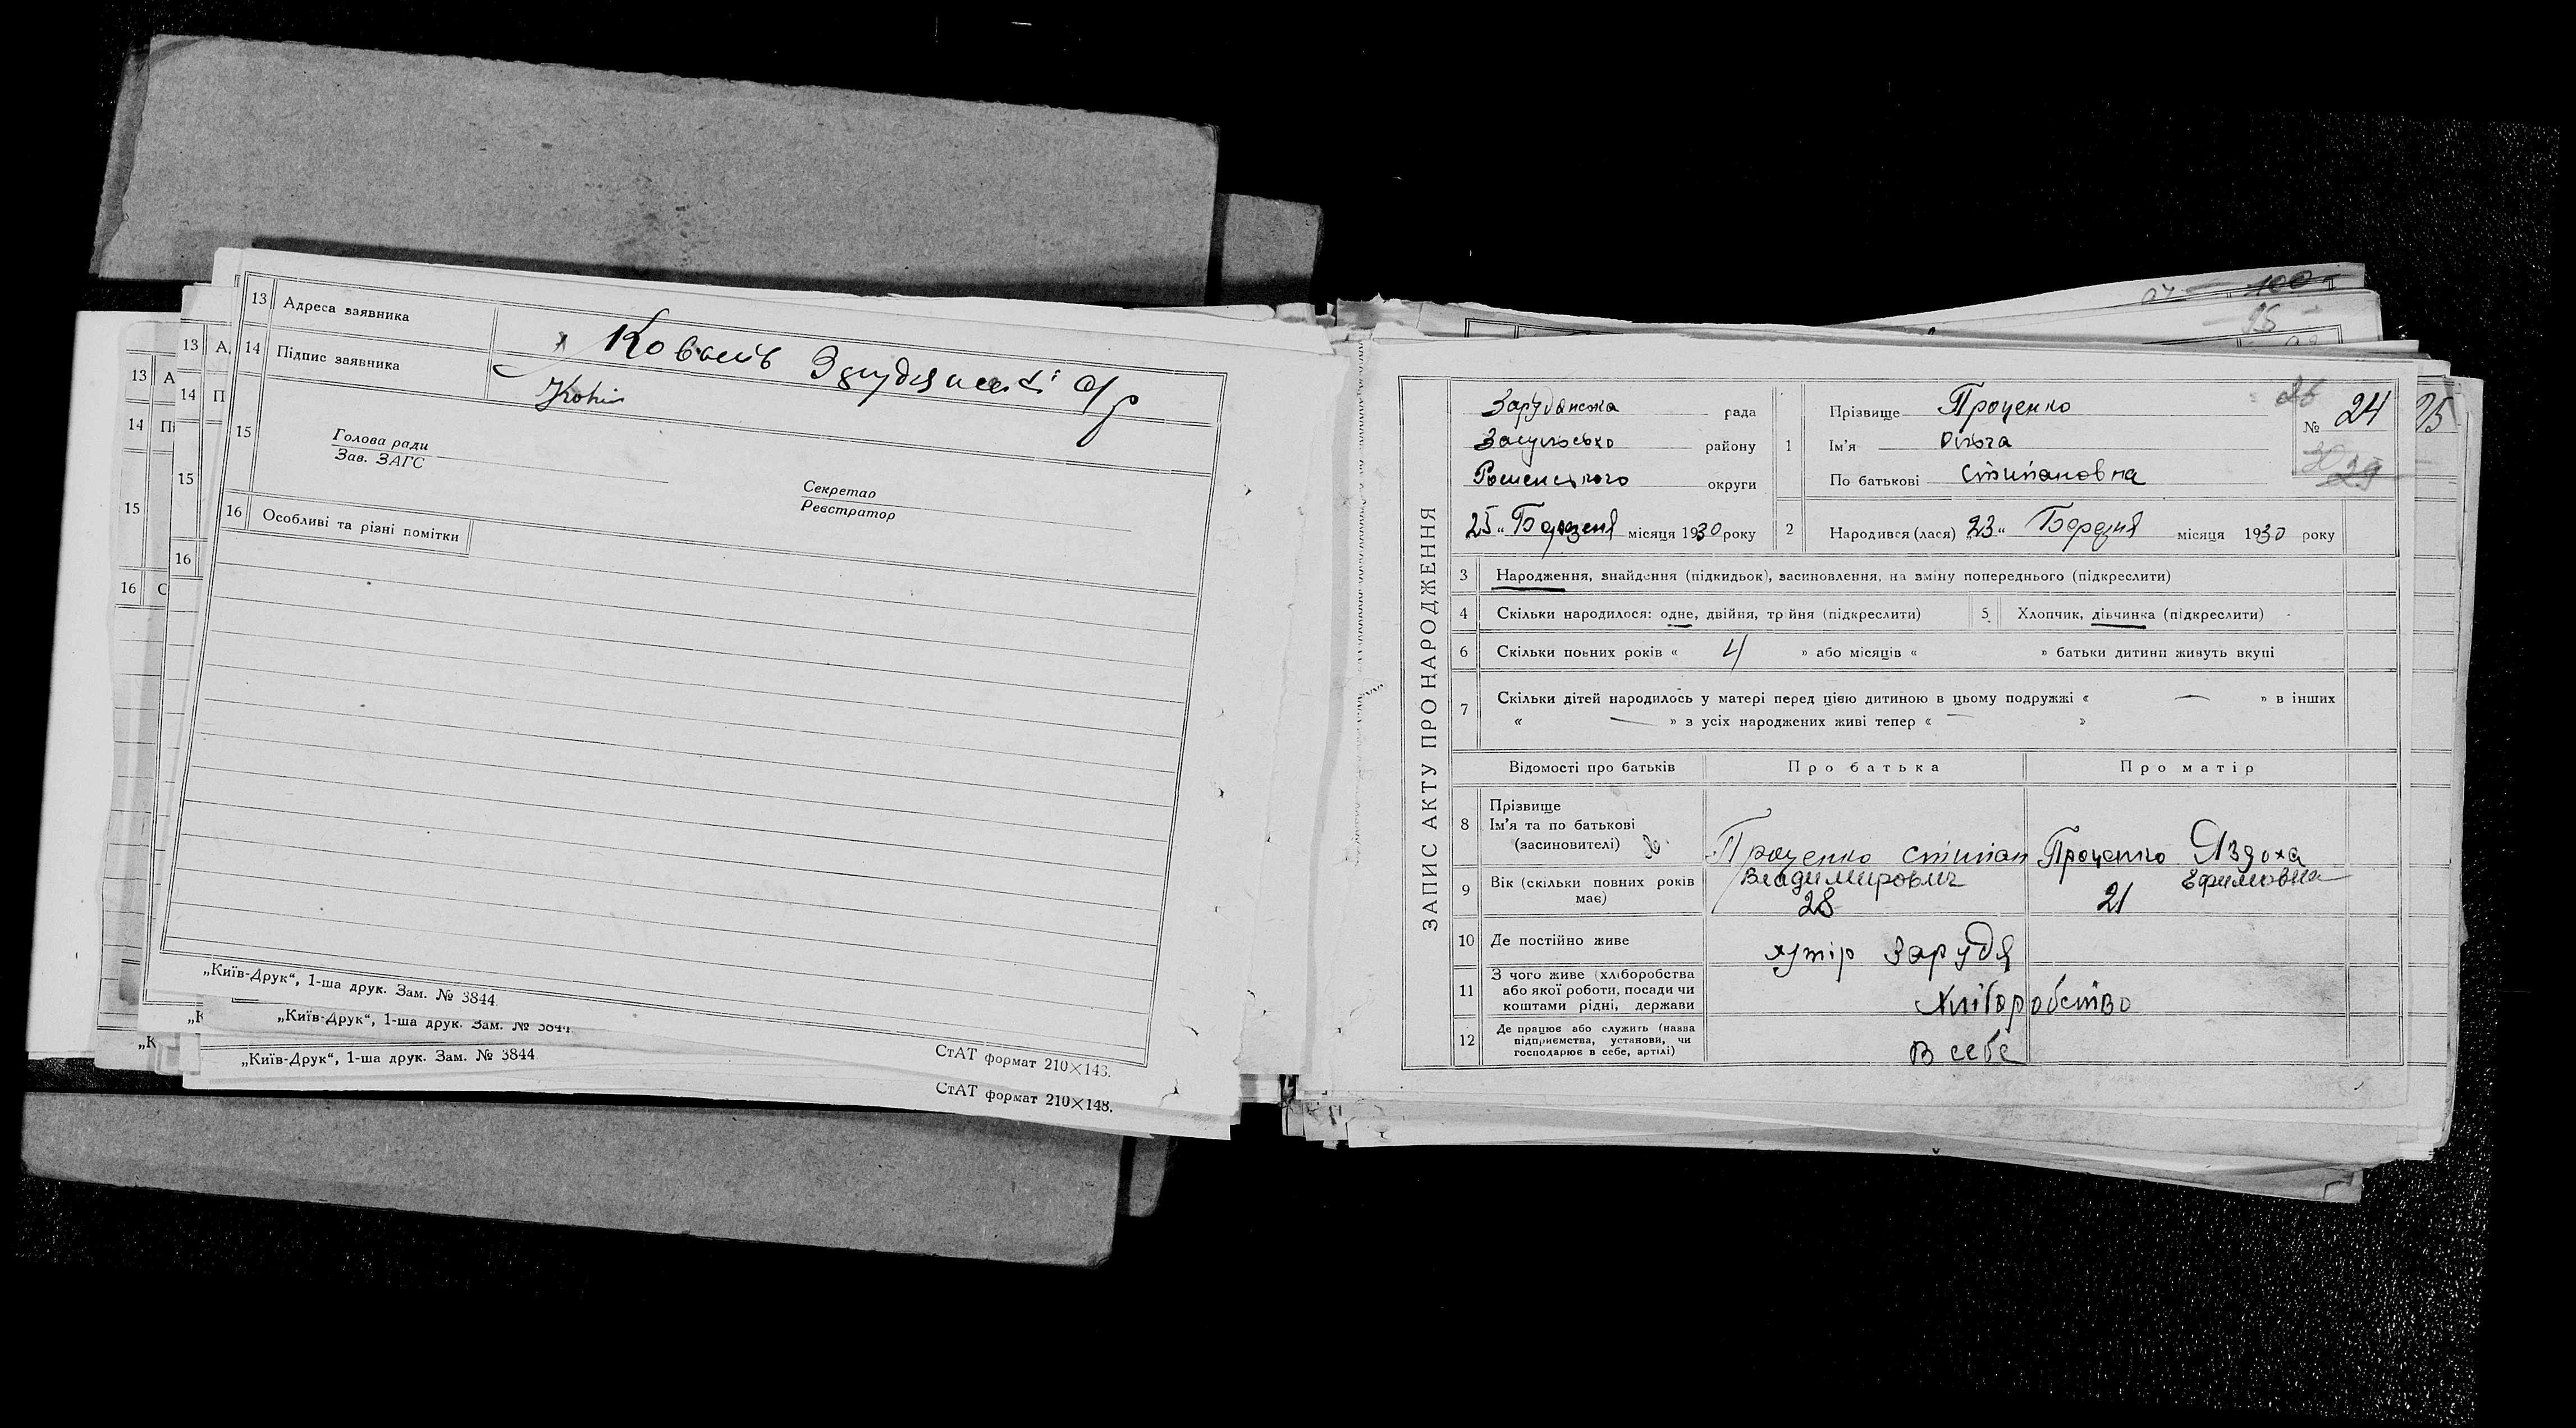 13 Адреса заявника
х Ковалів
14 Підпис заявника
15
Голова ради
Зав. ЗАГС
Секретар
Реєстратор
16 Особливі та різні помітки
„Київ-Друк“, 1-ша друк. Зам. № 3844
СтАТ формат 210×148.
„Київ-Друк“, 1-ша друк. Зам. № 3844
„Київ-Друк“, 1-ша друк. Зам. № 3844
СтАТ формат 210×148.
13 А
14 П
15
16
13 А
14 Пі
15
16 С
„К
„К
100
95
ЗАПИС АКТУ ПРО НАРОДЖЕННЯ
Зарудянська рада
Засульсько району
Роменського округи
25 „ Березня місяця 1930 року
1 Прізвище Проценко
Ім'я Ольга
По батькові Степановна
№ 24
25
26
30
29
2 Народився (лася) „23“ Березня місяця 1930 року
3 Народження, знайдення (підкидьок), засиновлення, на зміну попереднього (підкреслити)
4 Скільки народилося: одне, двійня, трійня (підкреслити) 5 Хлопчик, дівчинка (підкреслити)
6 Скільки повних років « 4 » або місяців « » батьки дитини живуть вкупі
7 Скільки дітей народилось у матері перед цією дитиною в цьому подружжі « — » в інших
« — » з усіх народжених живі тепер « — »
Відомості про батьків Про батька Про матір
8 Прізвище
Ім'я та по батькові
(засиновителі)
Проценко Степан Владимирович
Проценко Явдоха Ефимовна
9 Вік (скільки повних років має) 28 21
10 Де постійно живе хутір Зарудя
11 З чого живе (хліборобства або якої роботи, посади чи коштами рідні, держави Хліборобство
12 Де працює або служить (назва підприємства, установи, чи господарює в себе, артілі) В себе